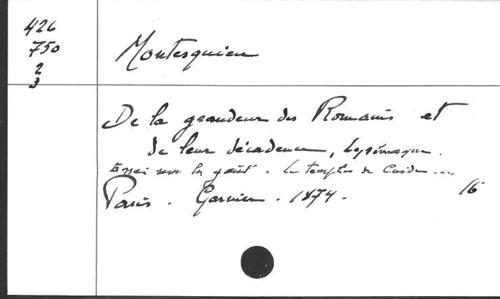 426
750
2
3
Montesquieu
De la grandeur des Romains et
de leur décadence, Lysimaque.
Essai sur le goût. Le temple de Cnide ...
Paris. Garnier. 1874. 16